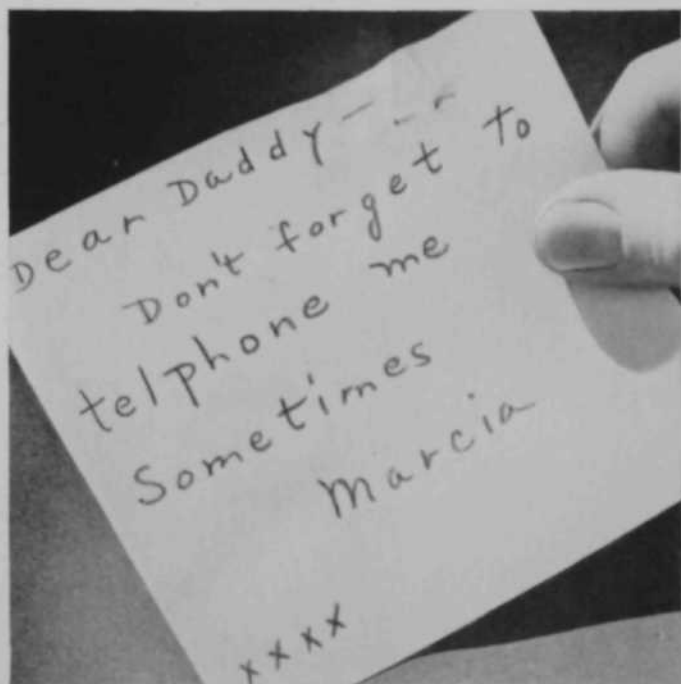 Dear Daddy---
Don't forget to
telphone me
Sometimes
Marcia
xxxx